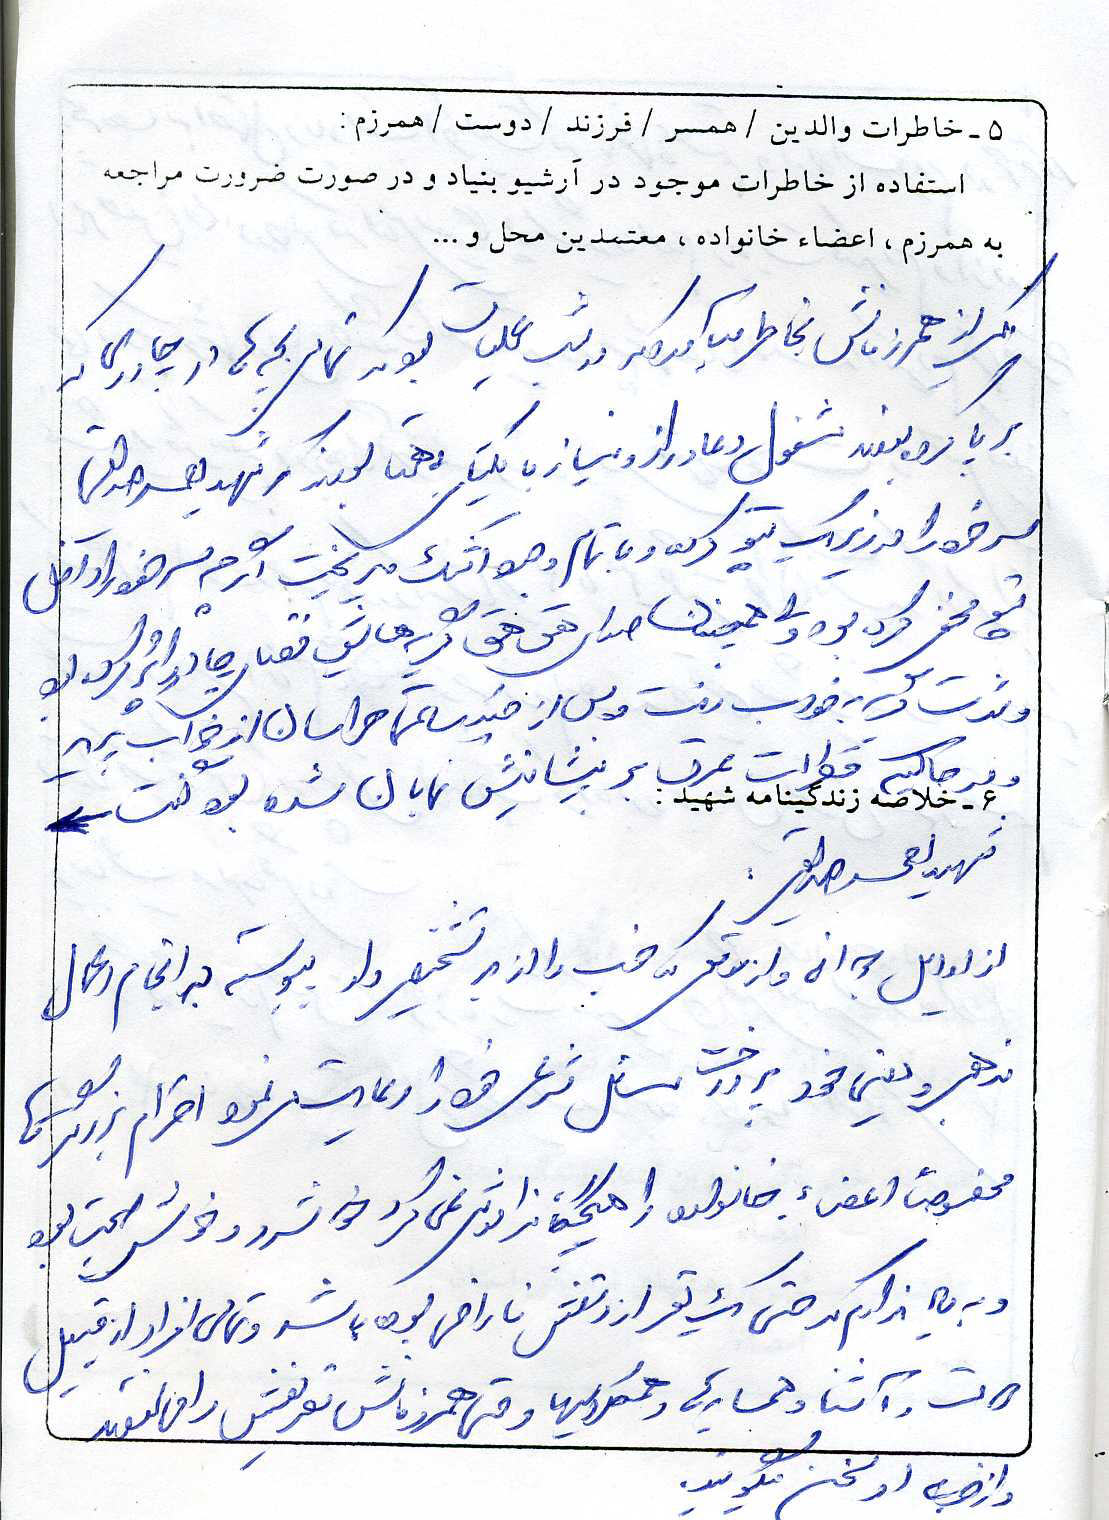 ۵ ـ خاطرات والدین / همسر / فرزند / دوست / همرزم :
استفاده از خاطرات موجود در آرشیو بنیاد و در صورت ضرورت مراجعه
به همرزم ، اعضاء خانواده ، معتمدین محل و ...
یکی از همرزمانش بخاطر می‌آورد که در شب عملیات بود که تمامی بچه ها در چادری که
بر پا کرده بودند مشغول دعا و راز و نیاز با یکتای بی همتا بودند که شهید
سر خود را در زیر یک پتو کرده و با تمام وجود اشک می ریخت اگر چه سر خود را داخل
پتو مخفی کرده بود ولی همچنان صدای هق هق گریه هایش فضای چادر را پر کرده بود
و مدت به خواب رفت و پس از چند ساعت هراسان از خواب پرید
و در حالیکه قطرات عرق بر پیشانیش نمایان شده بود گفت
۶ ـ خلاصه زندگینامه شهید :
شهید
از اوایل جوانی و از موقعی که خوب را از بد تشخیص داد پیوسته به انجام اعمال
مذهبی و دینی خود پرداخت مسائل شرعی خود را رعایت می نمود احترام بزرگترها
مخصوصاً اعضاء خانواده را هیچگاه فراموش نمی کرد خوشرو و خوش صحبت بود
و به یاد ندارم که حتی یک نفر از دستش ناراضی بوده باشد و تمامی افراد از قبیل
دوست و آشنا و همسایه و همکلاسیها و حتی همرزمانش
و از او سخن میگویند.